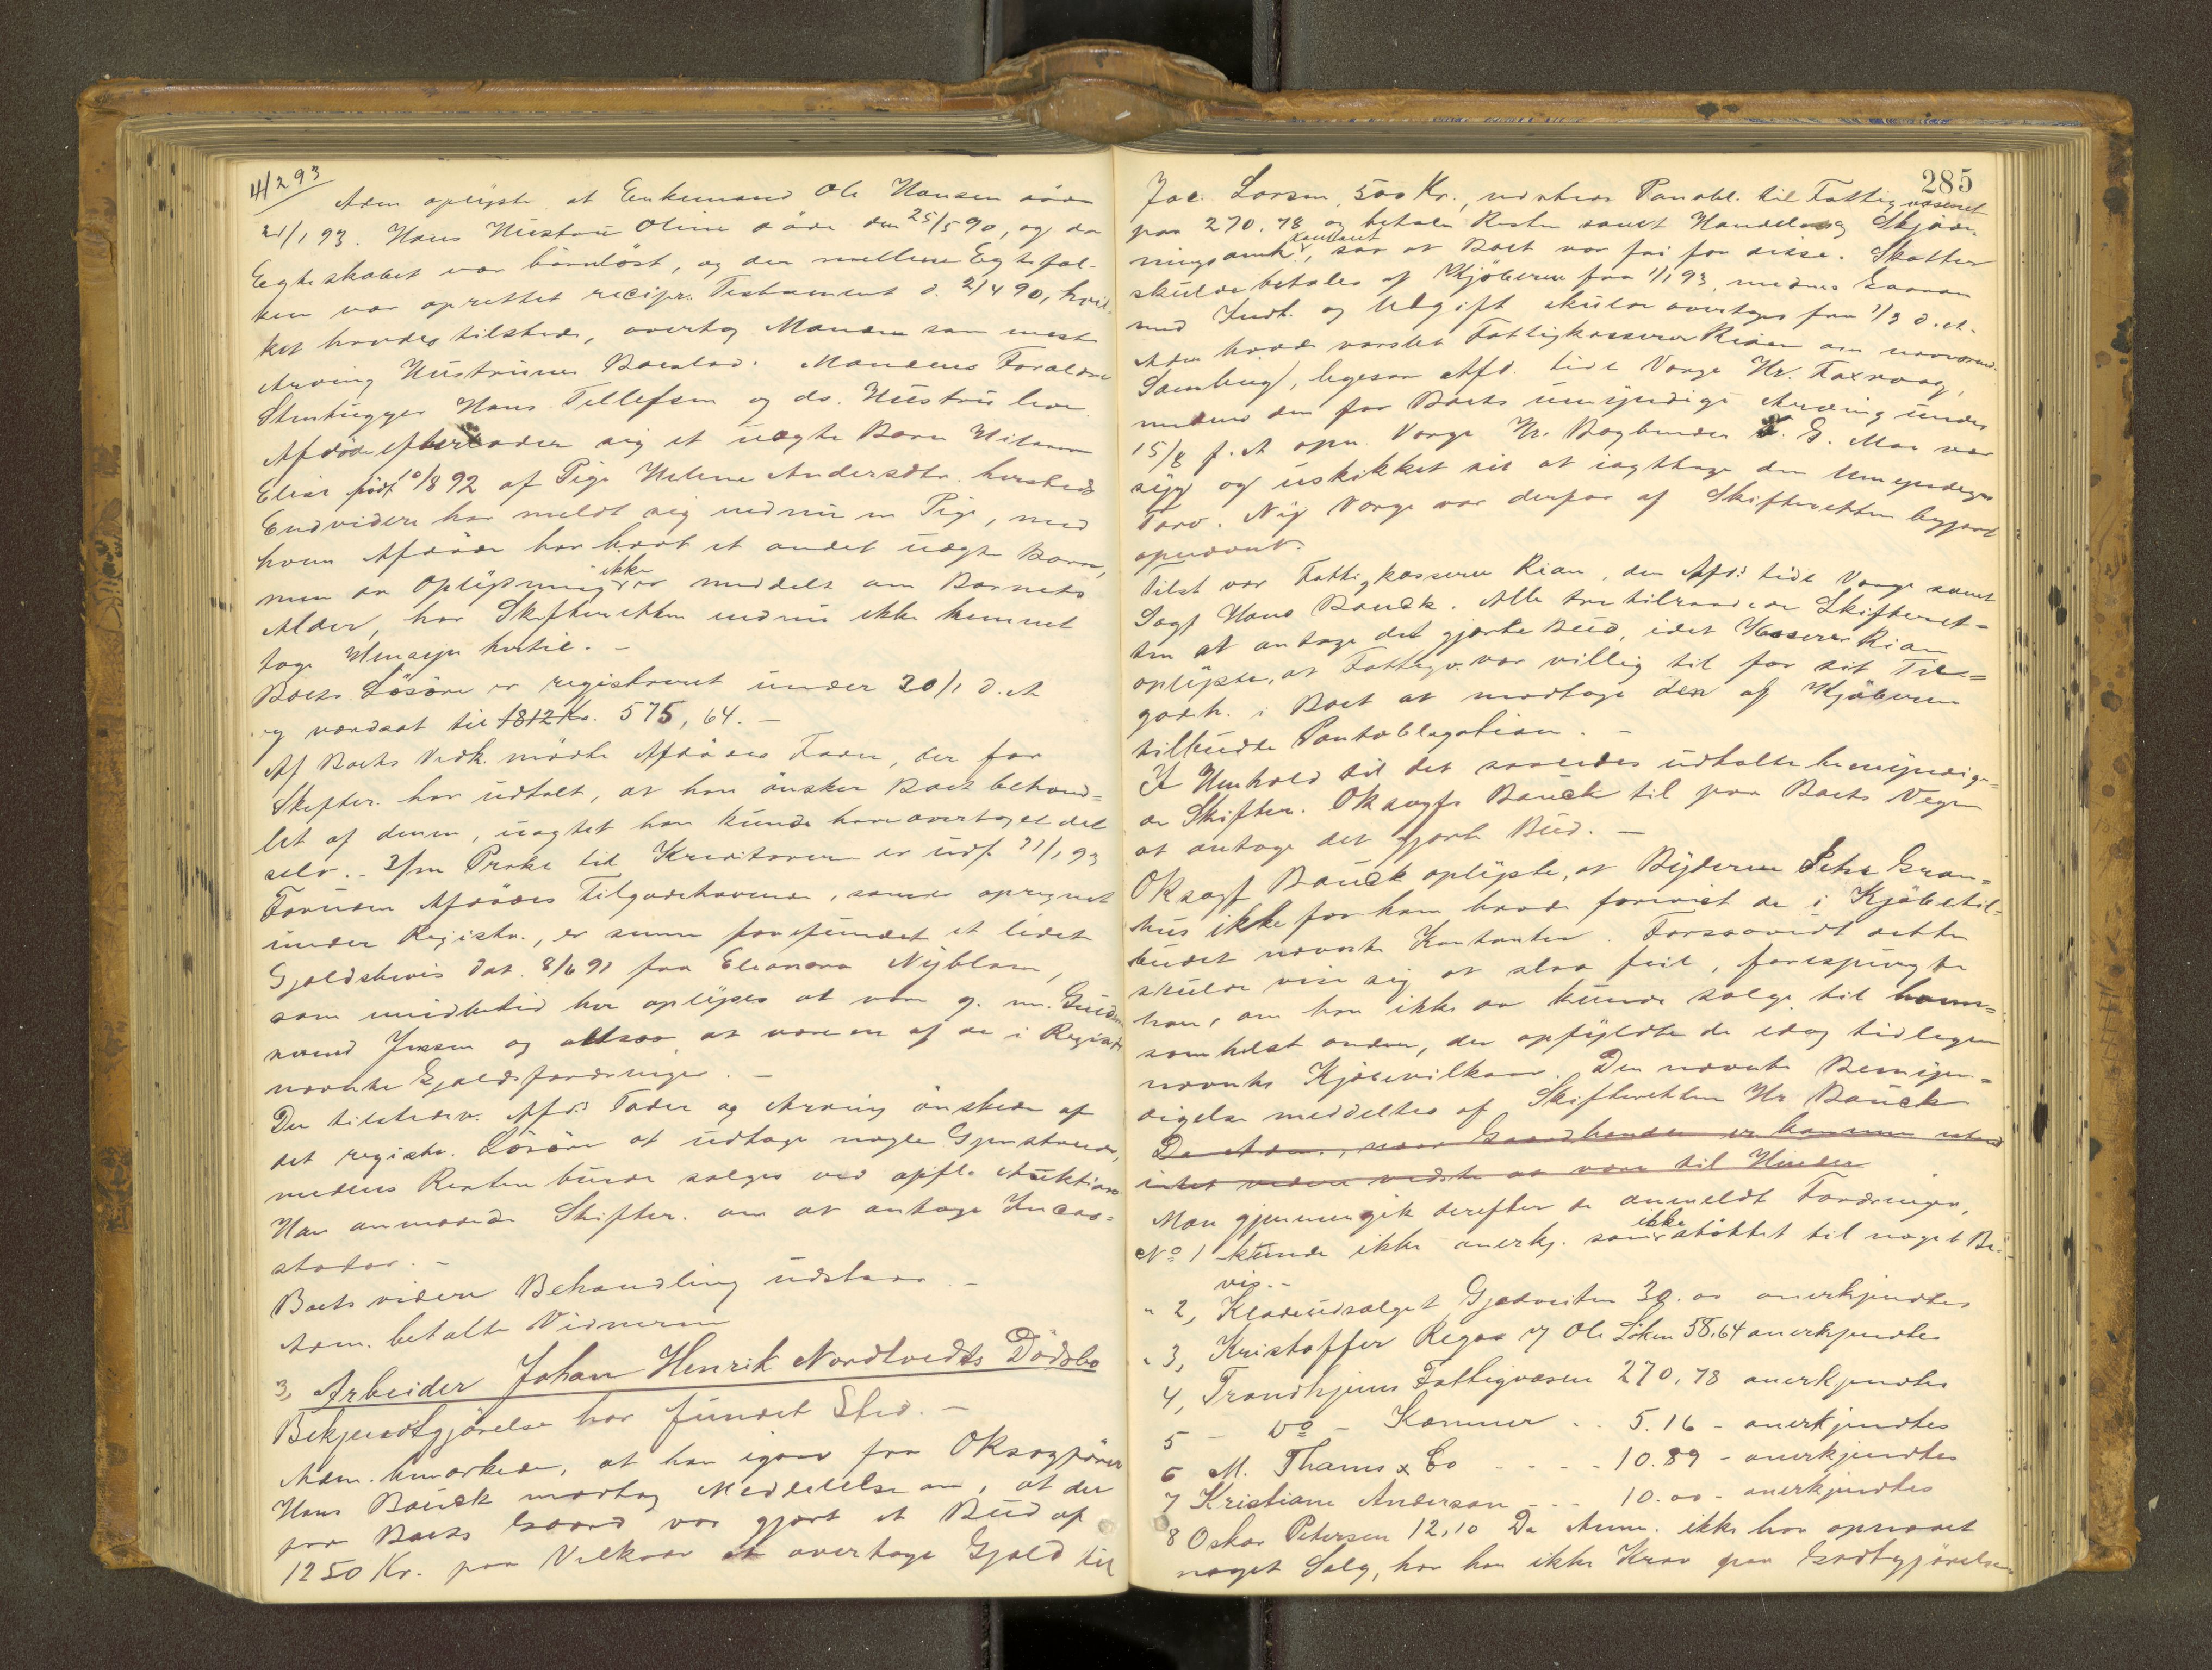 4/2 93
Adm oplyste at Enkemand Ole Hansen döde
21/1 93. Hans Hustru Oline döde den 25/5 90, og da
Egteskabet var barnlöst, og der mellem Egtefol-
ken var oprettet recipr. Testament d. 2/4 90, hvil-
ket havdes tilstede, overtog Manden som eneste
Arving Hustruens Boeslod. Mandens Forældre
Stenhugger Hans Tellefsen og ds. Hustru lever.
Afdöde efterlader sig et uægte Barn Hilma
Elise född 10/8 92 af Pige Helene Andersdtr. hersteds
Endvidere har meldt sig endnu en Pige, med
hvem Afdöde har havt et andet uægte Barn,
men da Oplysning ikke er meddelt om Barnets
Alder, har Skifteretten endnu ikke kunnet
tage Hensyn hertil. –
Boets Lösöre er registreret under 30/1 d. A
og værdsat til 1812 Kr. 575,64. –
Af Boets Vedk. mödte Afdödes Fader, der for
Skifter. har udtalt, at han önsker Boet behand=
let af denne, uagtet han kunde have overtaget det
selv. – 3/m Prokl til Kreditorerne er udf. 31/1 93
Foruden Afdödes Tilgodehavende, saaledes opregnet
under Registr., er senere forefundet et lidet
Gjeldsbevis dat. 8/6 91 fra Eleonora Nyblom,
som imidlertid her oplyses at være g. m.
Jensen og altsaa at være en af de i Registr
nævnte Gjeldsfordringer. –
Den tilstedev. Afd.s Fader og Arving önskede af
det registr. Lösöre at udtage nogle Gjenstande,
medens Resten burde sælges ved offtl. Auktion
Han anmodede Skifter. om at antage Incas=
sator. –
Boets videre Behandling udstaar. –
Adm. betalte Vidnerne
3, Arbeider Johan Henrik Nordtvedts Dödsbo
Bekjendtgjörelse har fundet Sted. –
Adm. bemærkede, at han igaar fra OKsagförer
Hans Bauck modtog Meddelelse om, at der
paa Boets Gaard var gjort et Bud af
1250 Kr. paa Vilkaar at overtage Gjeld til
285
Jac. Larsen 500 Kr., udstede Panobl. til Fattigvæsenet
paa 270.78 og betale Resten samt Handels og Skjöde-
ningsomk. kontant, saa at Boet var fri for disse. Skatter
skulde betales af Kjöberen fra 1/1 93, medens Gaarden
med Indt. og Udgift skulde overtages fra 1/3 d. A.
Adm havde varslet Fattigkasserer Rian om nærværende
Samling, ligesaa Afd. tidl Verge Hr. Foxvoog,
medens den for Boets umyndige Arving under
15/8 f. A opn. Verge Hr. Bogbinder G. Moe var
syg og uskikket til at iagttage den Umyndiges
Tarv. Ny Verge var derfor af Skifteretten begjært
opnævnt.
Tilst var Fattigkasserer Rian, den Afd.s tidl Verge samt
Sagf Hans Bauck. Alle tre tilraadede Skifteret=
ten at antage det gjorte Bud, idet Kasserer Rian
oplyste, at Fattigv. var villig til for sit Til=
godeh. i Boet at modtage den af Kjöberen
tilbudte Pantobligation. –
I Henhold til det saaledes udtalte bemyndige=
de Skifter. OKsagf Bauck til paa Boets Vegne
at antage det gjorte Bud. –
OKsagf Bauck oplyste, at Byderen Peter Gran=
hus ikke for ham havde forevist de i Kjöbetil-
budet nævnte Kontanter. Forsaavidt dette
skulde vise sig at slaa feil, forespurgte
han, om han ikke da kunde sælge til hvem=
somhelst anden, der opfyldte de idag tidligere
nævnte Kjöbevilkaar. Den nævnte Bemyn=
digelse meddeltes af Skifteretten Hr Bauck
intet videre vidste at være til Hinder
Man gjennemgik derefter de anmeldt Fordringer,
No 1 kunde ikke anerkj. som ikke stöttet til noget Be-
vis. –
" 2, Klædeudsalget Gjedveiten 30.00 anerkjendtes
" 3, Kristoffer Regaa og Ole Löken 58,64 anerkjendtes
4, Trondhjems Fattigvæsen 270,78 anerkjendtes
5 – Do – Kommer - - 5.16 – anerkjendtes
6 M. Thams & Co - - - - 10.89 – anerkjendtes
7 Kristiane Anderson - - - 10.00 – anerkjendtes
8 Oskar Petersen 12,10 Da Anm. ikke har opnaaet
noget Salg, har han ikke Krav paa Godtgjörelse